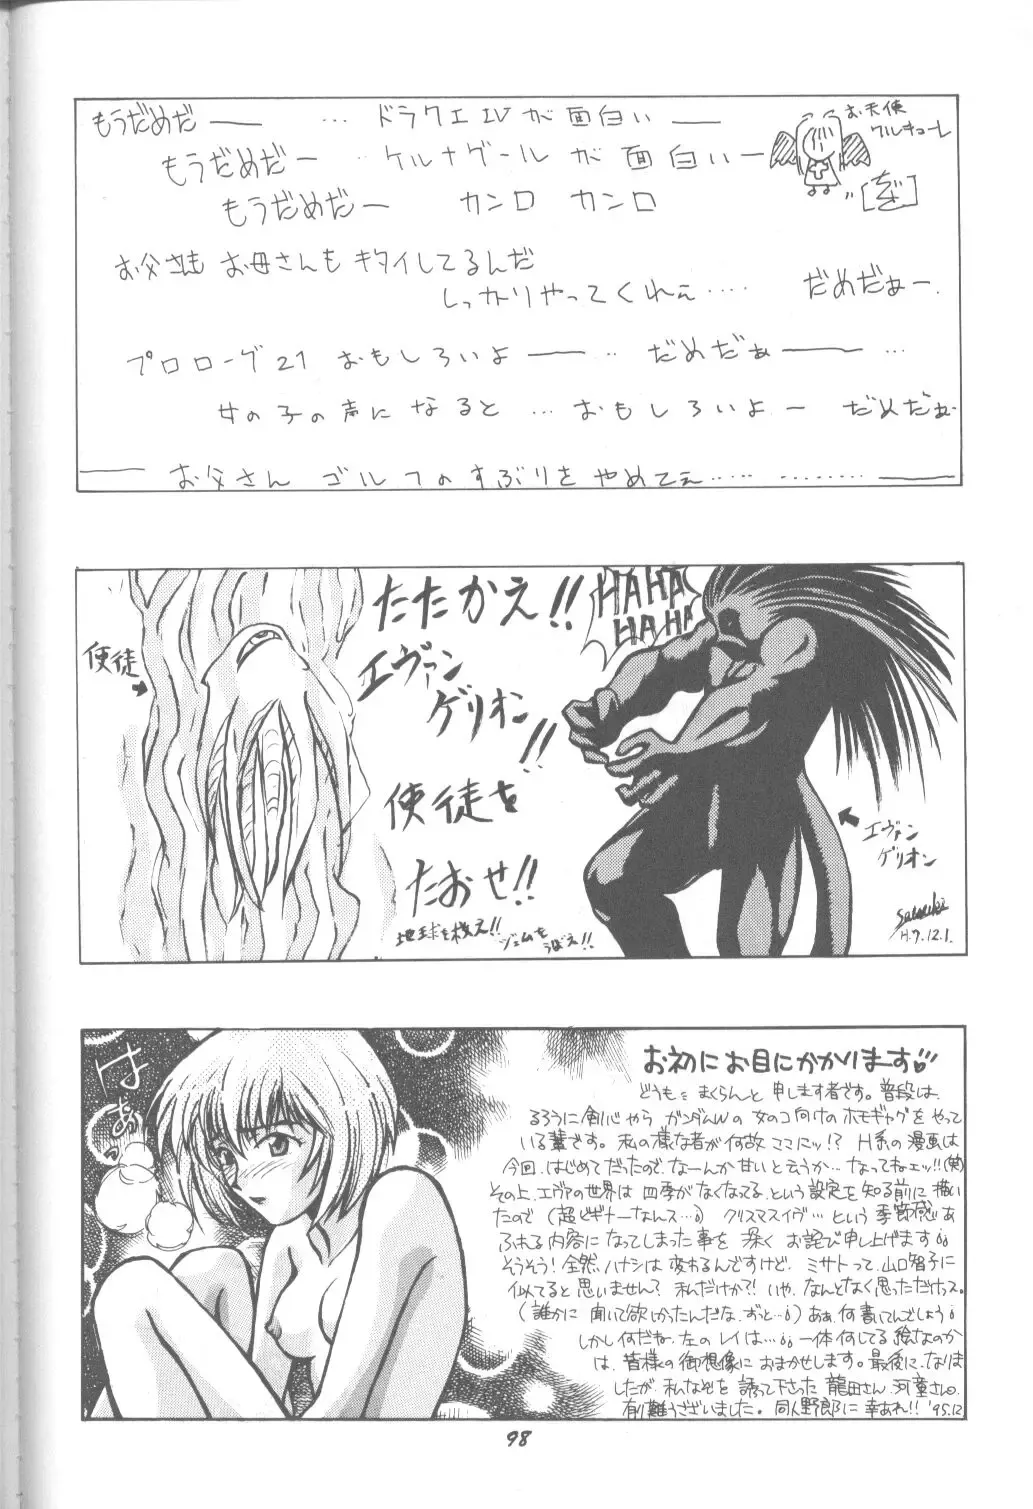 もうだめだー ‥‥ ドラクエIVが面白いー
お天使
ケルキョーレ
もうだめだー ‥ ケルナグールが面白いー
もうだめだー カンロ カンロ
お父さんも お母さんも キタイしてるんだ
しっかりやってくれぇ‥‥ だめだぁー.
プロローグ21 おもしろいよー‥ だめだぁー‥
女の子の声になると ‥ おもしろいよー だめだぁ
お父さん ゴルフのすぶりをやめてぇ‥‥‥
たたかえ!!
エヴァン
ゲリオン!!
使徒を
たおせ!!
地球を救え!!
ジェムをうばえ!!
使徒
HAHA
HAHA
エヴァン
ゲリオン
H.7.12.1.
はぁ
お初にお目にかかります
どうも まくらんと申します者です。普段は、
るろうに剣心やら ガンダムWの 女のコ向けの ホモギャグを やって
いる輩です。私の様な者が何故ココにッ!? H系の漫画は
今回、はじめてだったので、なーんか甘いと云うか‥なってねェッ!!(笑)
その上、エヴァの世界は 四季がなくなってる、という設定を知る前に描い
たので(超ビギナーなんス‥) クリスマスイヴ‥という季節感あ
ふれる内容になってしまった事を 深く お詫び申し上げます
そうそう!全然、ハナシは変わるんですけど、ミサトって、山口智子に
似てると思いません? 私だけか?! いや、なんとなく思っただけっス。
(誰かに聞いて欲しかったんだな、ずっと‥) あぁ、何書いてんでしょう
しかし何だね、左のレイは‥ 一体何してる絵なのか
は、皆様の御想像におまかせします。最後に、なりま
したが、私なぞを誘って下さった 龍田さん、河童さん。
有難うございました。同人野郎に幸あれ!! '95.12
98